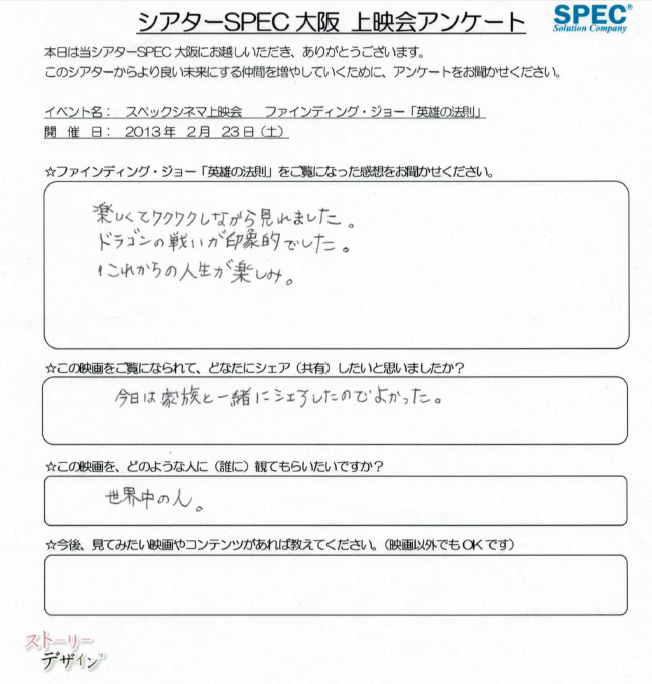 シアターSPEC大阪 上映会アンケート
SPEC®
Solution Company
本日は当シアターSPEC大阪にお越しいただき、ありがとうございます。
このシアターからより良い未来にする仲間を増やしていくために、アンケートをお聞かせください。
イベント名： スペックシネマ上映会 ファインディング・ジョー「英雄の法則」
開 催 日： 2013年 2月 23日（土）
☆ファインディング・ジョー「英雄の法則」をご覧になった感想をお聞かせください。
楽しくてワクワクしながら見れました。
ドラゴンの戦いが印象的でした。
これからの人生が楽しみ。
☆この映画をご覧になられて、どなたにシェア（共有）したいと思いましたか？
今日は家族と一緒にシェアしたのでよかった。
☆この映画を、どのような人に（誰に）観てもらいたいですか？
世界中の人。
☆今後、見てみたい映画やコンテンツがあれば教えてください。（映画以外でもOKです）
ストーリー
デザイン